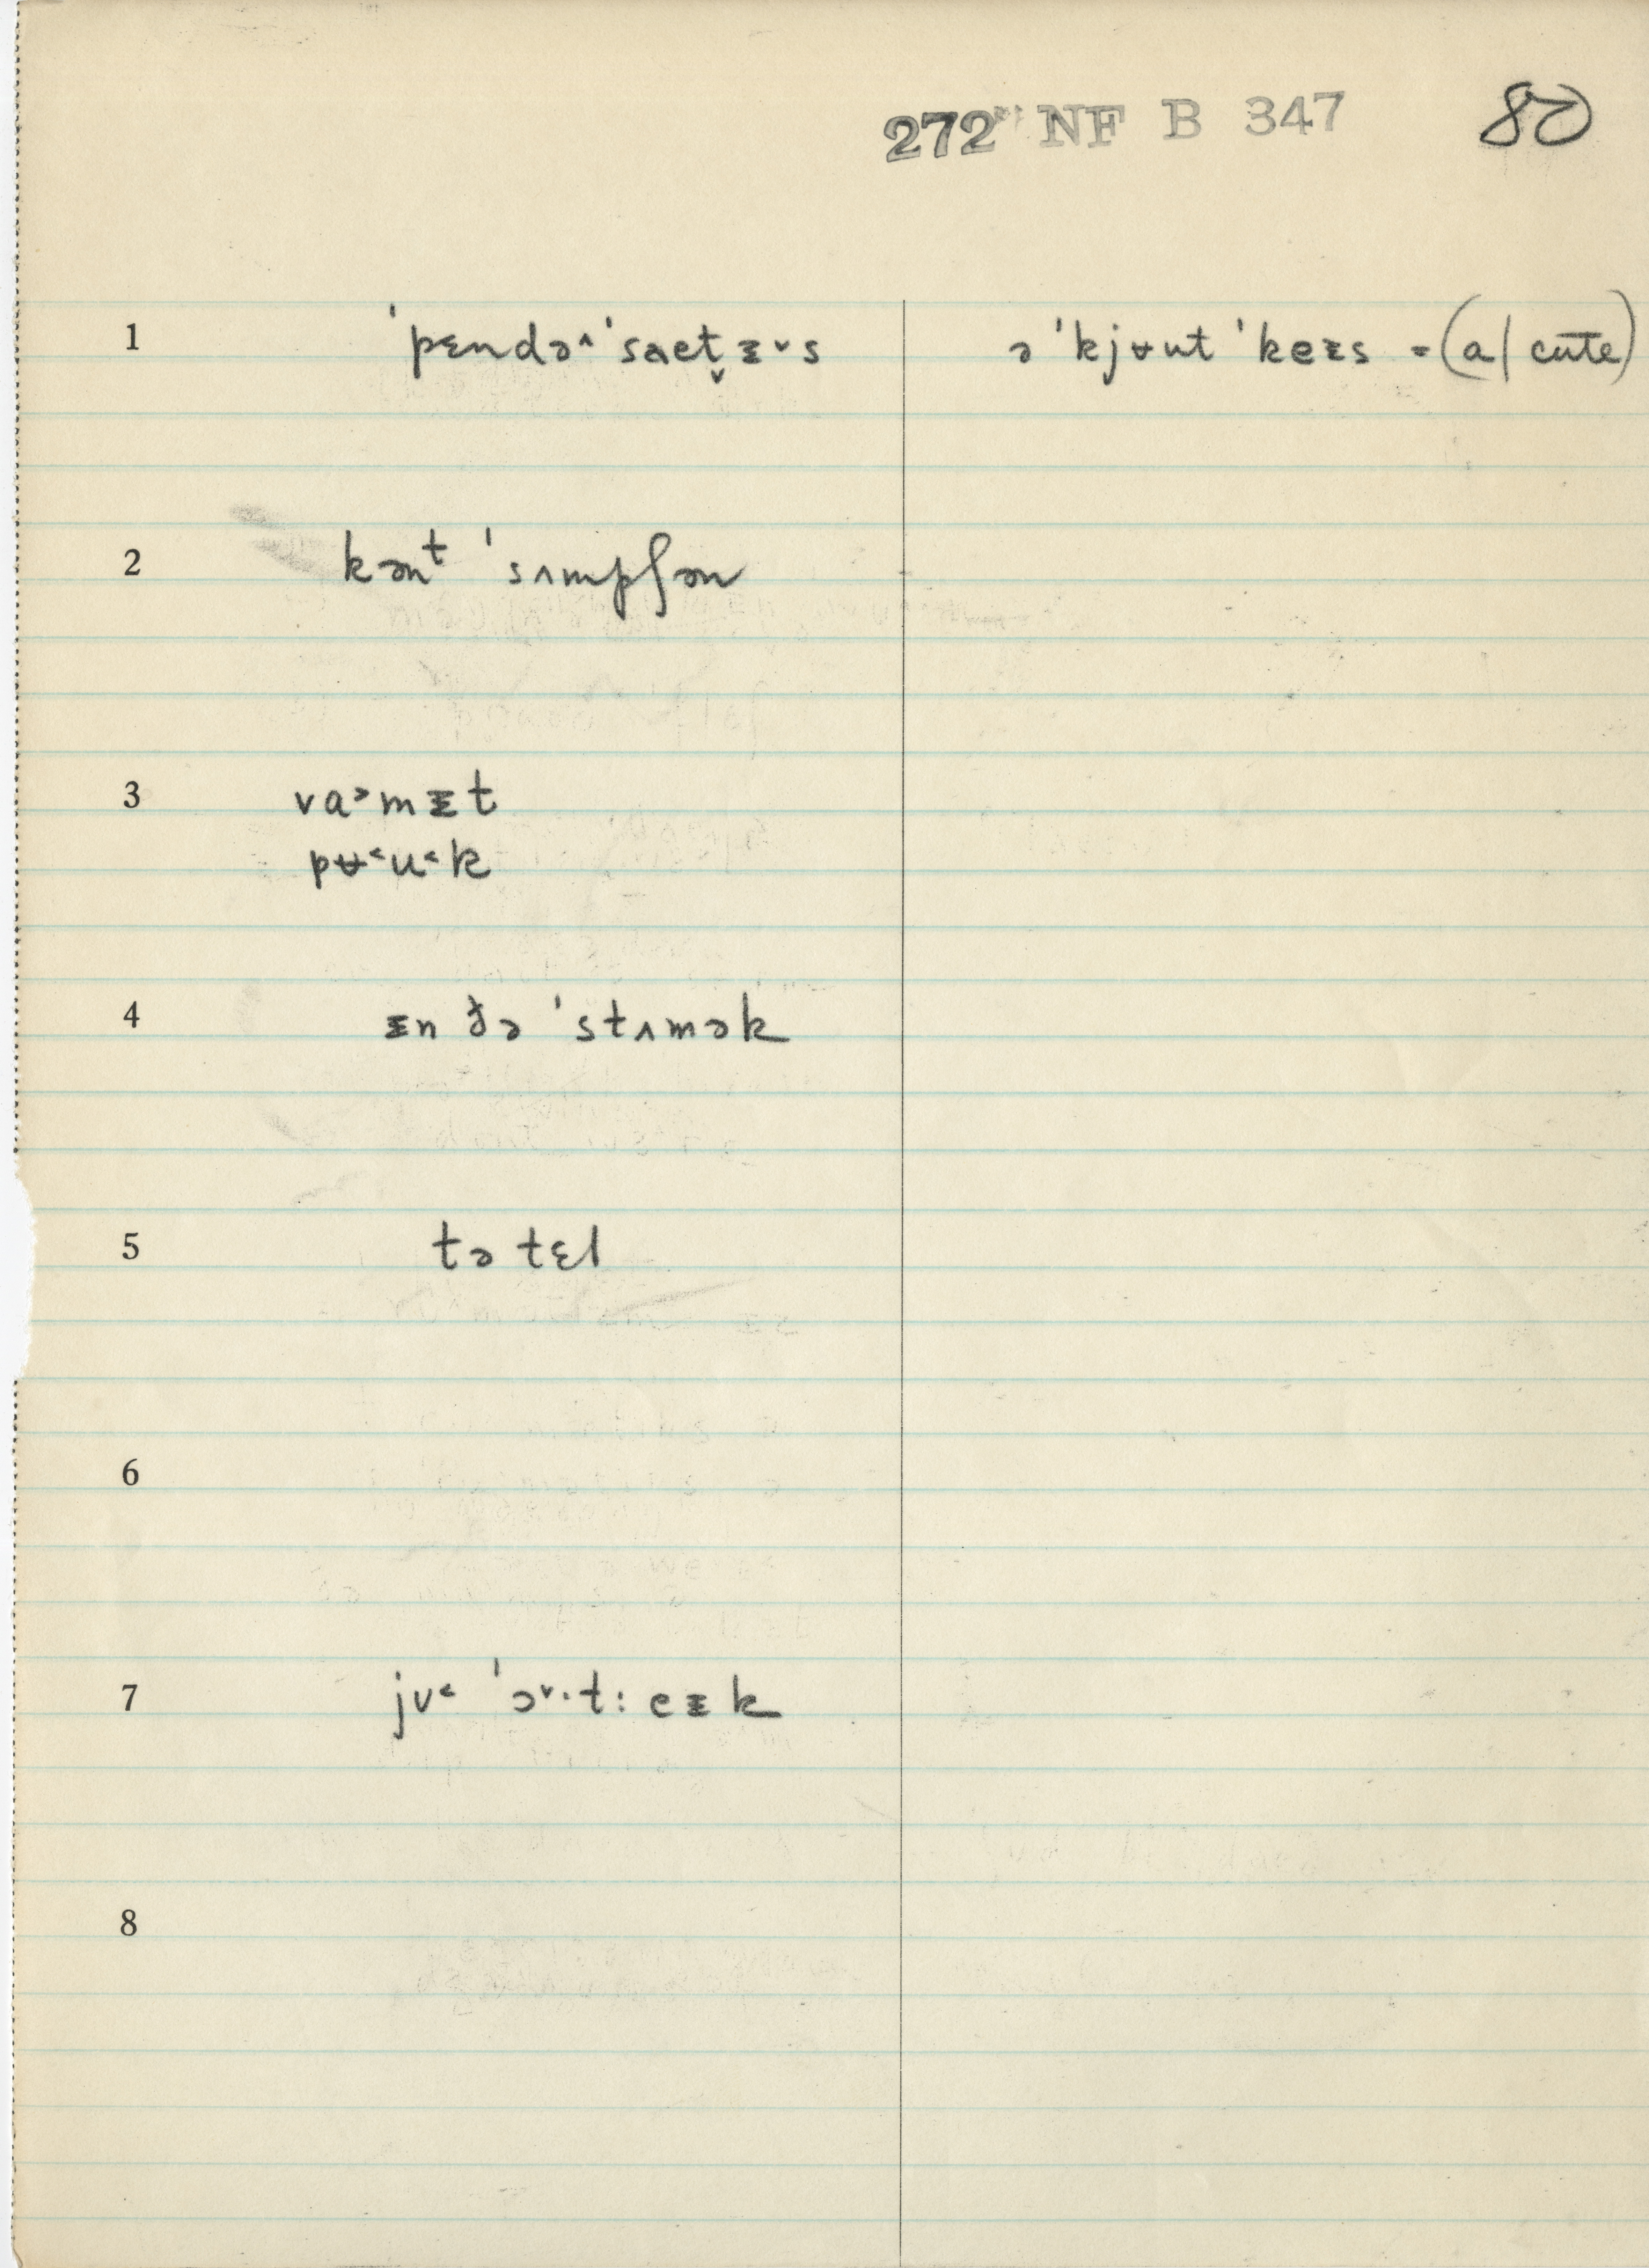 272 NF B 347 80
1 ˈpɛndə˄ˈsaet̬ᵻ˅s ə ˈkjʉut ˈkeᵻs = (a | cute)
2 kənᵗ ˈsʌmpʃən
3 va˃mᵻt
pʉ˂u˂k
4 ᵻn ðə ˈstʌmək
5 tə tɛl
6
7 jʊ˂ ˈɔ˅·t: eᵻk
8